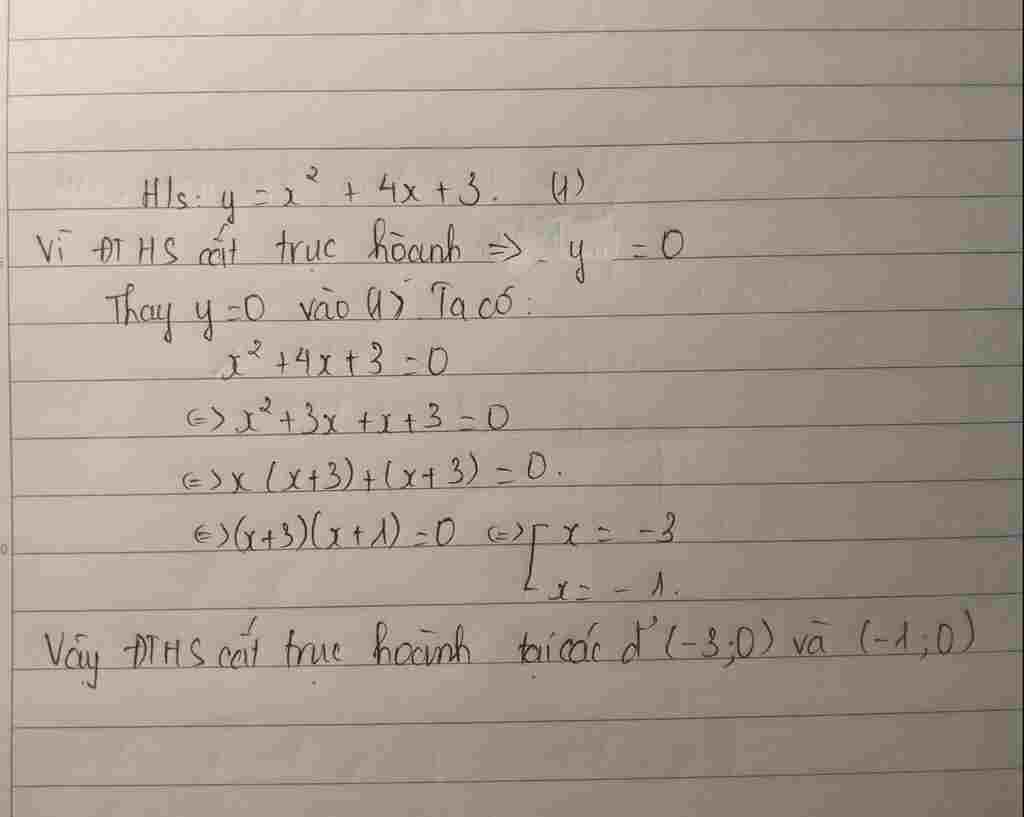 H/s: y = x² + 4x + 3. (1)
Vì ĐTHS cắt trục hoành => y = 0
Thay y=0 vào (1) Ta có:
x² + 4x + 3 = 0
<=> x² + 3x + x + 3 = 0
<=> x (x+3) + (x+3) = 0.
<=> (x+3)(x+1) = 0 <=> [ x = -3
x = -1.
Vậy ĐTHS cắt trục hoành tại các đ' (-3;0) và (-1;0)